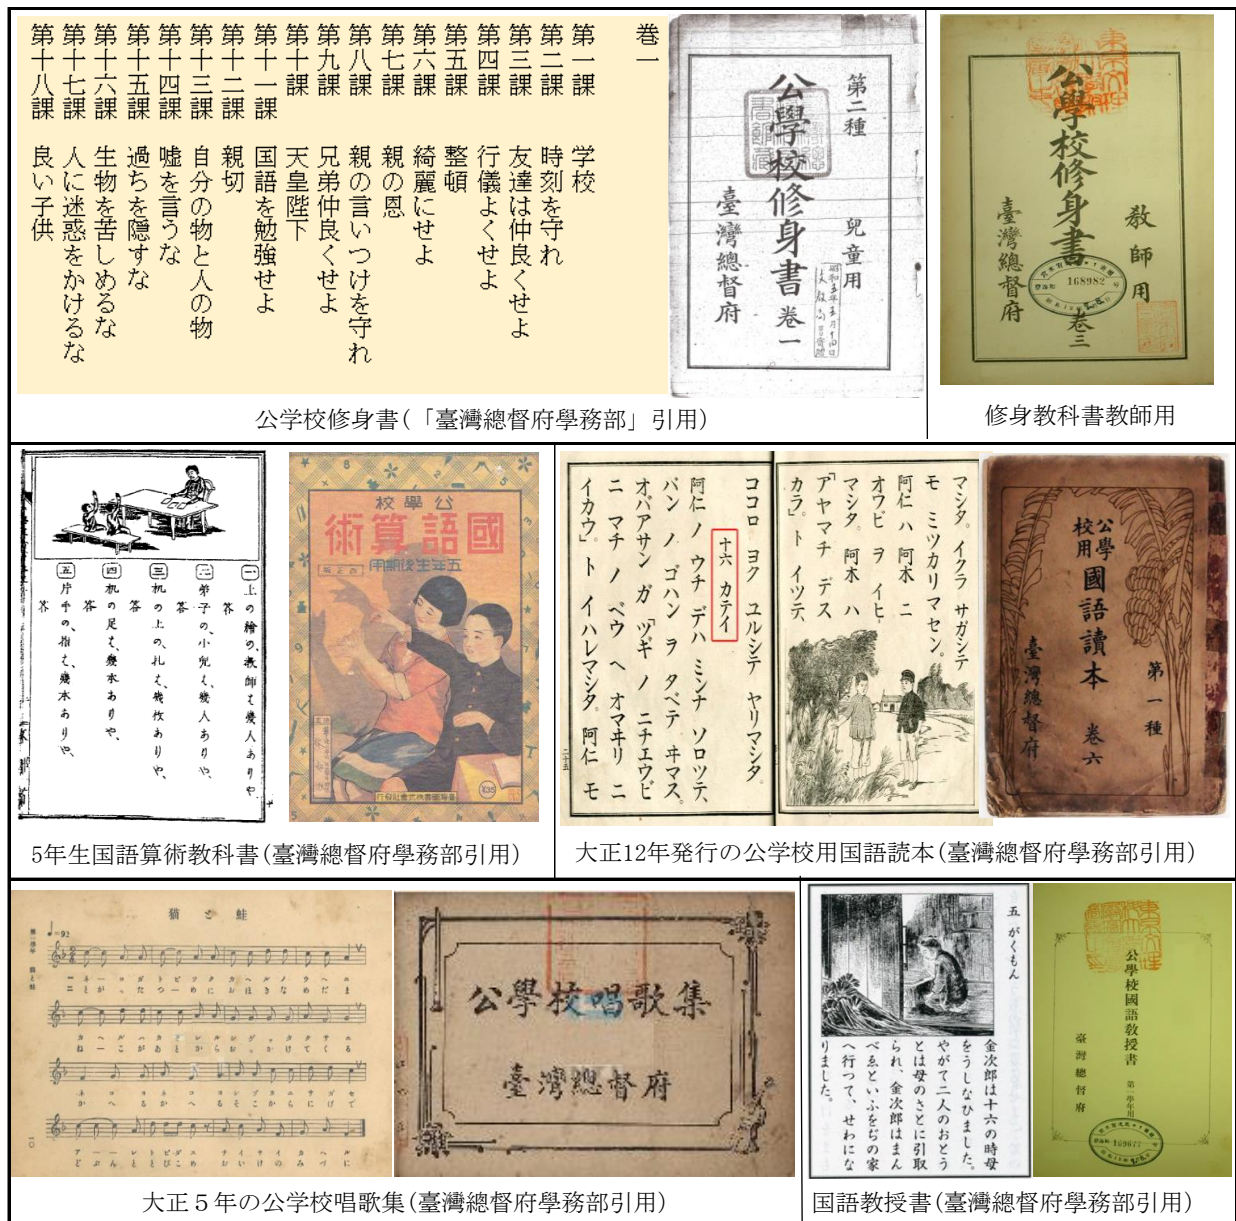 巻一
第一課 学校
第二課 時刻を守れ
第三課 友達は仲良くせよ
第四課 行儀よくせよ
第五課 整頓
第六課 綺麗にせよ
第七課 親の恩
第八課 親の言いつけを守れ
第九課 兄弟仲良くせよ
第十課 天皇陛下
第十一課 国語を勉強せよ
第十二課 親切
第十三課 自分の物と人の物
第十四課 嘘を言うな
第十五課 過ちを隠すな
第十六課 生物を苦しめるな
第十七課 人に迷惑をかけるな
第十八課 良い子供
第二種 兒童用
公學校修身書 卷一
臺灣總督府
公学校修身書(「臺灣總督府學務部」引用)
教師用
公學校修身書 卷三
臺灣總督府
168982
修身教科書教師用
一 上の繪の、教師は幾人ありや、
答
二 弟子の、小兒は、幾人ありや、
答
三 机の上の、札は、幾枚ありや、
答
四 机の足は、幾本ありや、
答
五 片手の、指は、幾本ありや、
答
公學校
國語算術
五年生後期用
5年生国語算術教科書(臺灣總督府學務部引用)
マシタ。イクラ サガシテ
モ ミツカリマセン。
阿仁 ハ 阿木 ニ
オワビ ヲ イヒ
マシタ。 阿木 ハ
「アヤマチ デス
カラ」。ト イツテ、
ココロ ヨク ユルシテ ヤリマシタ。
十六 カテイ
阿仁 ノ ウチ デハ ミンナ ソロツテ、
バン ノ ゴハン ヲ タベテ ヰマス。
オバアサン ガ 「ツギ ノ ニチエウビ
ニ マチ ノ ベウ ヘ オマヰリ ニ
イカウ」。ト イハレマシタ。阿仁 モ
二十五
公學校用 國語讀本 卷六
第一種
臺灣總督府
大正12年発行の公学校用国語読本(臺灣總督府學務部引用)
猫と蛙
♩=92
公學校唱歌集
臺灣總督府
大正5年の公学校唱歌集(臺灣總督府學務部引用)
五 がくもん
金次郎は十六の時母
をうしなひました。
やがて二人のおとう
とは母のさとに引取
られ、金次郎はまん
べゑといふをぢの家
へ行つて、せわにな
りました。
公學校國語教授書 第一學年用
臺灣總督府
169677
国語教授書(臺灣總督府學務部引用)